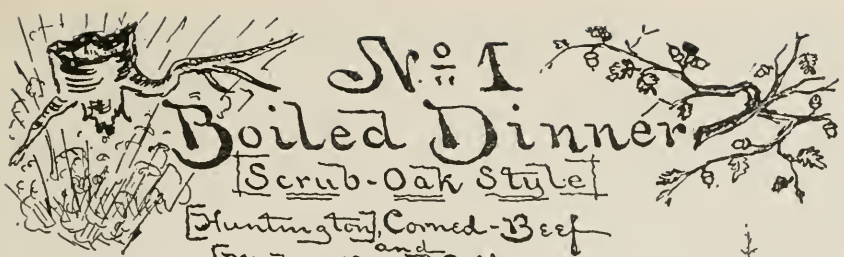 No. 1
Boiled Dinner
[Scrub-Oak Style]
[Huntington], Corned-Beef
and